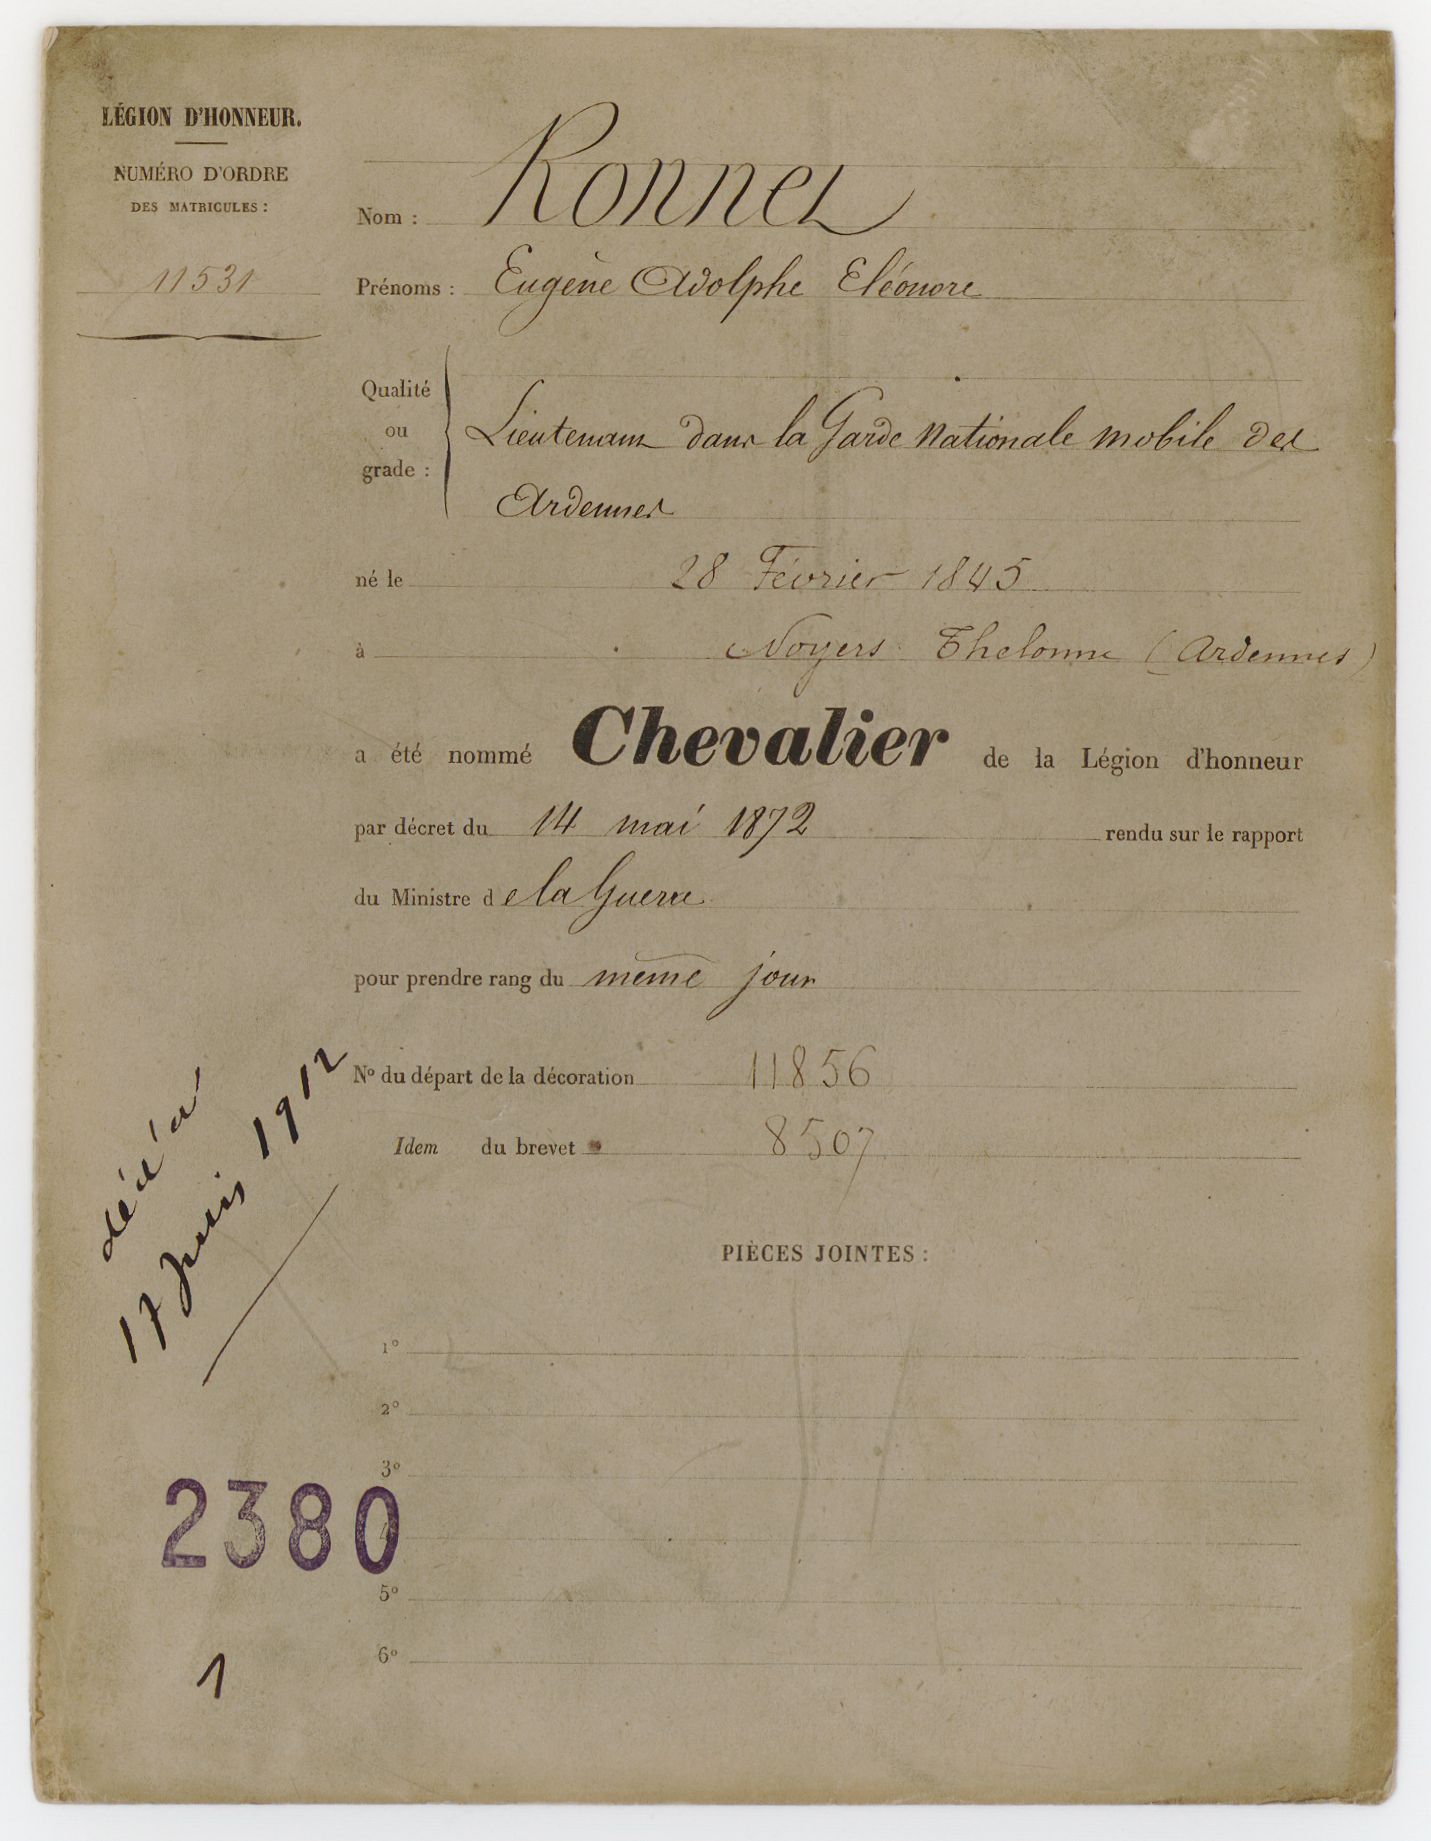 LÉGION D'HONNEUR.
NUMÉRO D'ORDRE
DES MATRICULES :
11531
Nom : Ronnet
Prénoms : Eugène Adolphe Eléonore
Qualité
ou
grade :
Lieutenant dans la Garde Nationale mobile des
Ardennes
né le 28 Février 1845
à Noyers Thelonne (Ardennes)
a été nommé Chevalier de la Légion d'honneur
par décret du 14 mai 1872 rendu sur le rapport
du Ministre de la Guerre
pour prendre rang du même jour
Nº du départ de la décoration 11856
Idem du brevet 8507
décédé
17 Juin 1912
PIÈCES JOINTES :
1º
2º
3º
2380
5º
6º
1